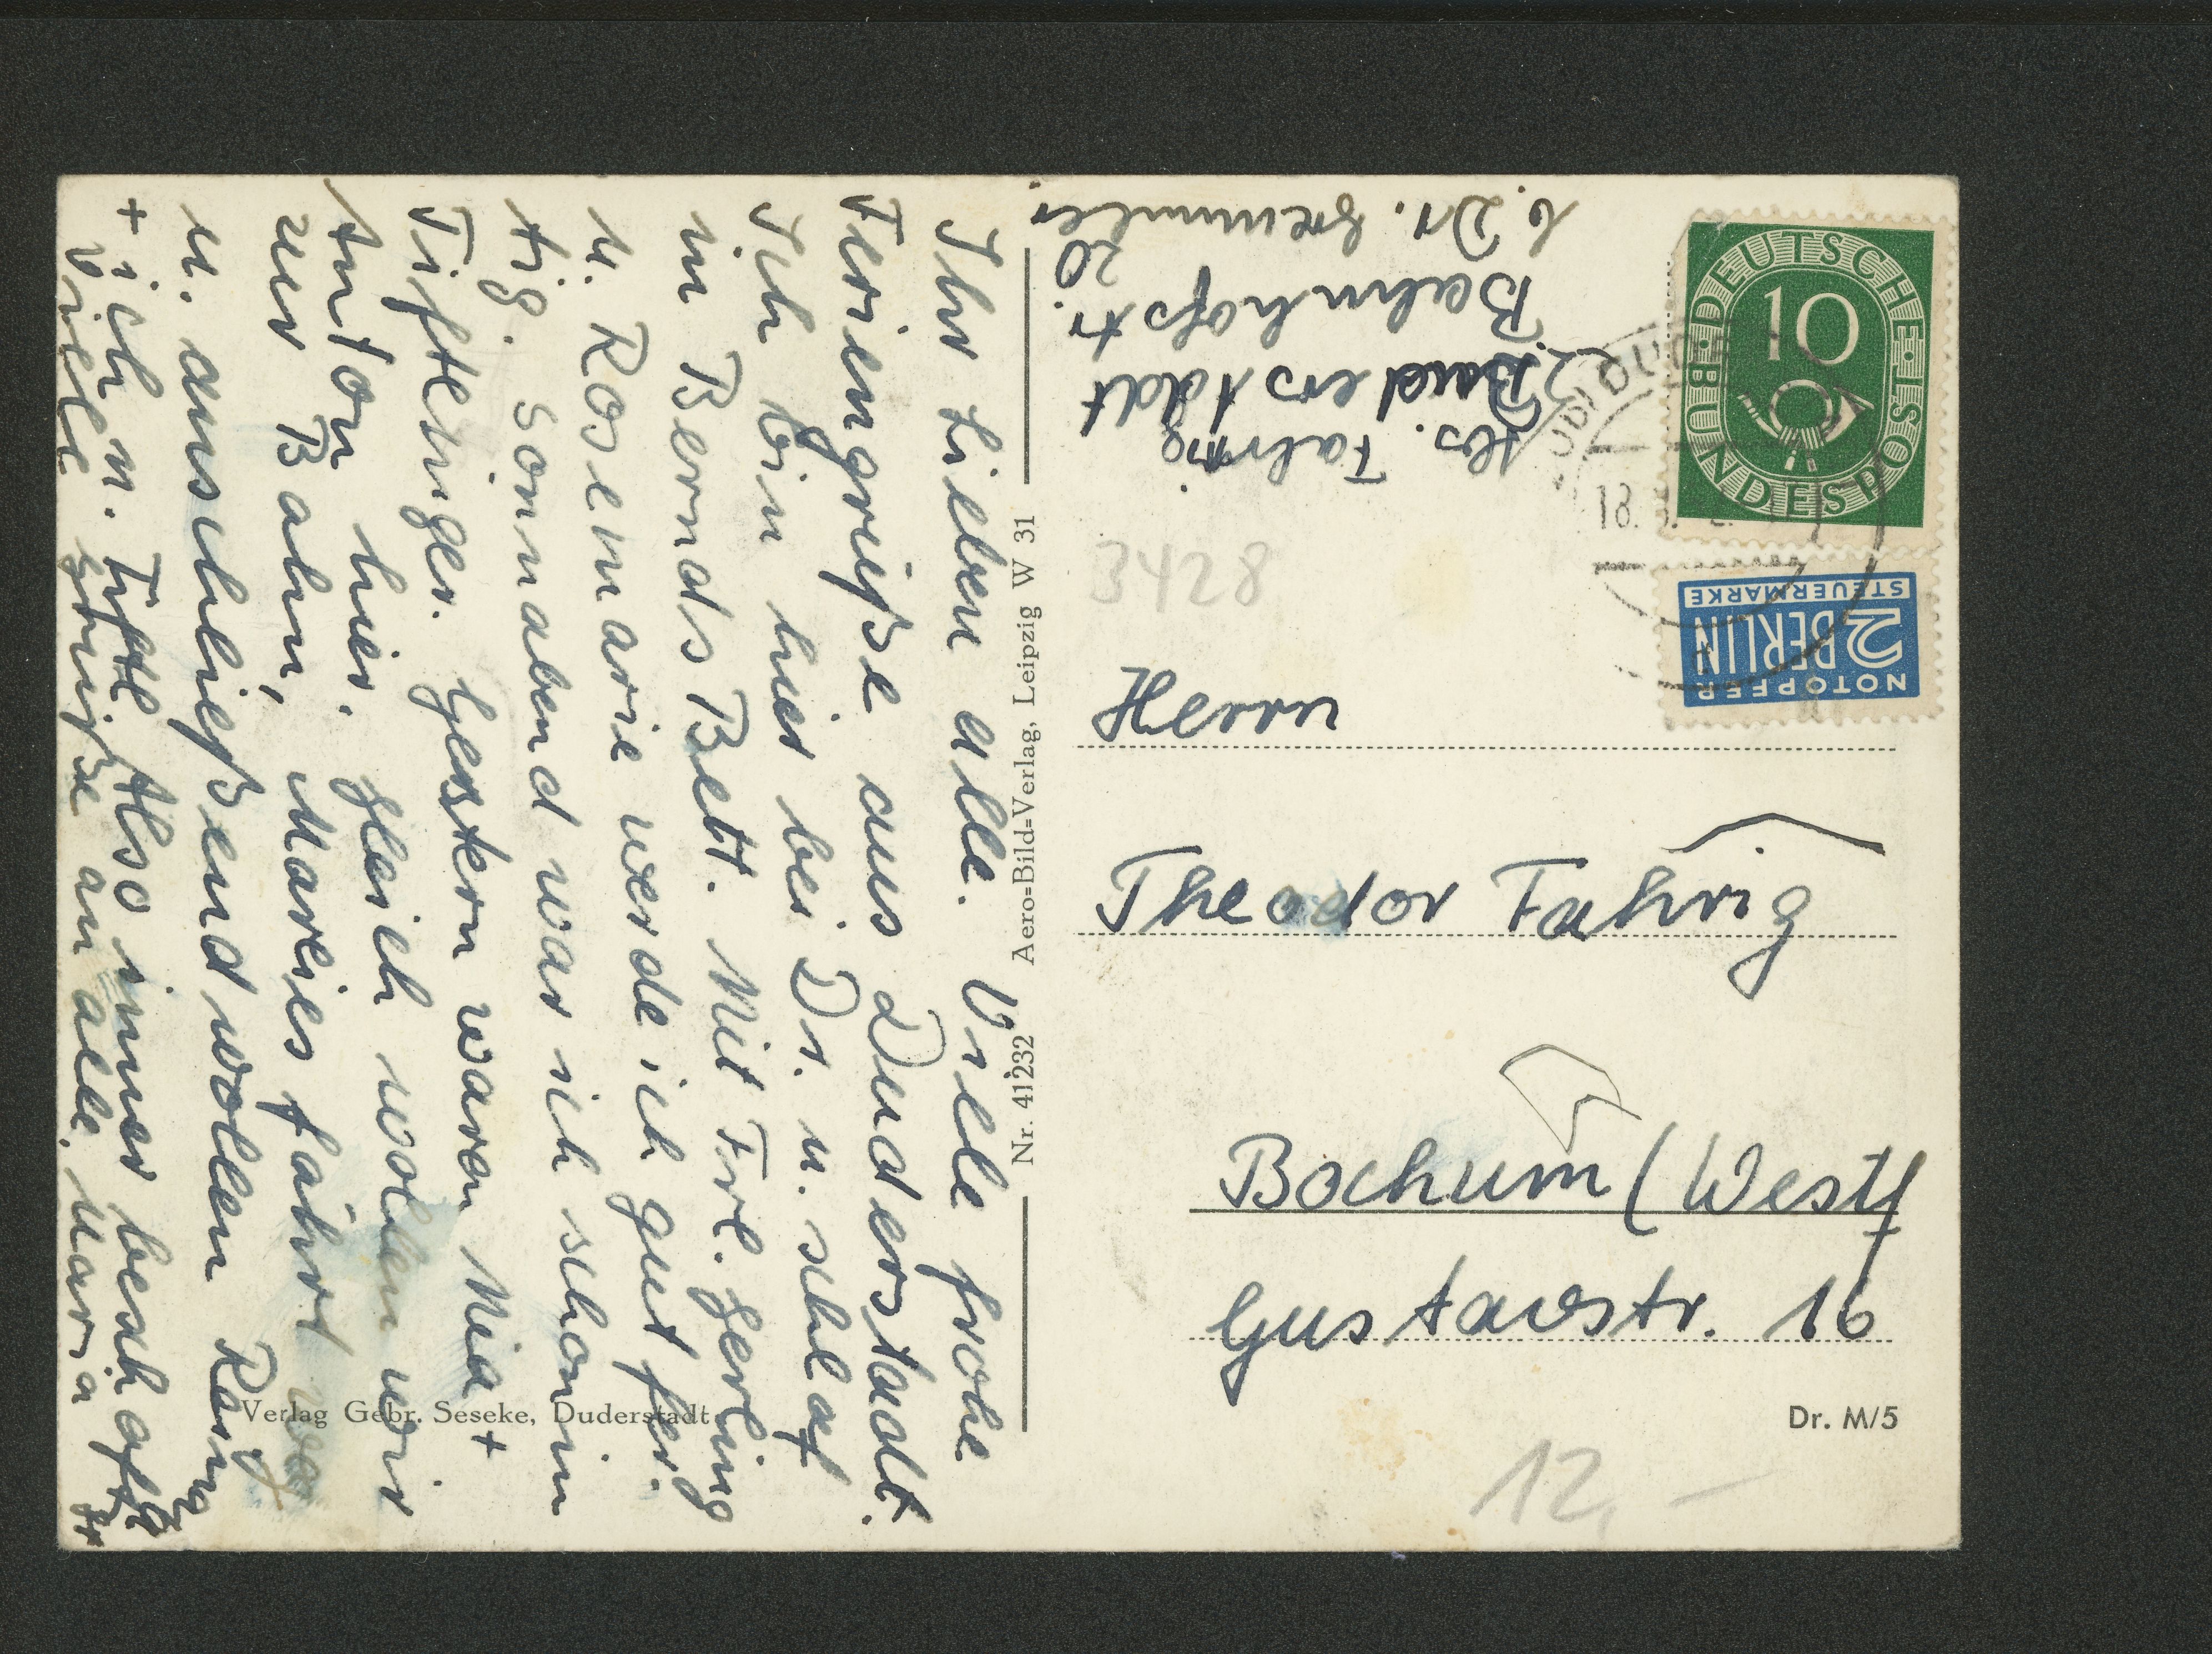 Ihr Lieben alle. Viele frohe
Feriengrüße aus Duderstadt.
Ich bin hier bei Dr. u. schlaf
in Bernds Bett. Mit Frl. Gerling
u. Rosemarie werde ich gut fer-
tig. Sonnabend war ich schon in
Tiftlingen. Gestern waren Mia +
Anton hier. Gleich wollen wir
zur Bahn, Marlies fährt
u. anschließend wollen
+ ich n. Also immer beschäftigt
Viele Grüße an alle. Maria
Nr. 41232 Aero-Bild-Verlag, Leipzig W 31
Verlag Gebr. Seseke, Duderstadt
Abs. Fahrig
Duderstadt
Bahnhofstr. 20
b. Dr.
DEUTSCHE BUNDESPOST
10
18.
NOTOPFER
2 BERLIN
STEUERMARKE
3428
Herrn
Theodor Fahrig
Bochum (Westf
Gustavstr. 16
Dr. M/5
12,-